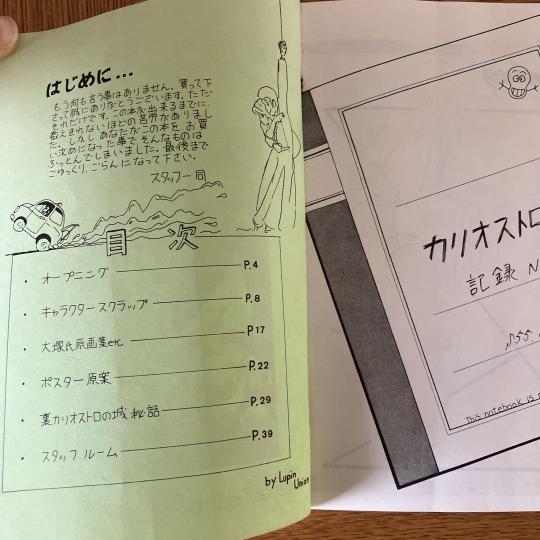 はじめに...
もう何も言う事はありません。買って下
さって誠にありがとうございます。ただ
それだけです。この本が出来るまでに、
数えきれないほどの苦労がありまし
た。しかしあなたがこの本をお買
い求めになった事でそんなものは
ふっとんでしまいました。最後まで
ごゆっくり、ごらんになって下さい。
スタッフ一同
目次
・オープニング P.4
・キャラクタースクラップ P.8
・大塚氏原画集etc P.17
・ポスター原案 P.22
・裏カリオストロの城秘話 P.29
・スタッフルーム P.39
by Lupin
Union
カリオストロ
記録 N
This notebook is